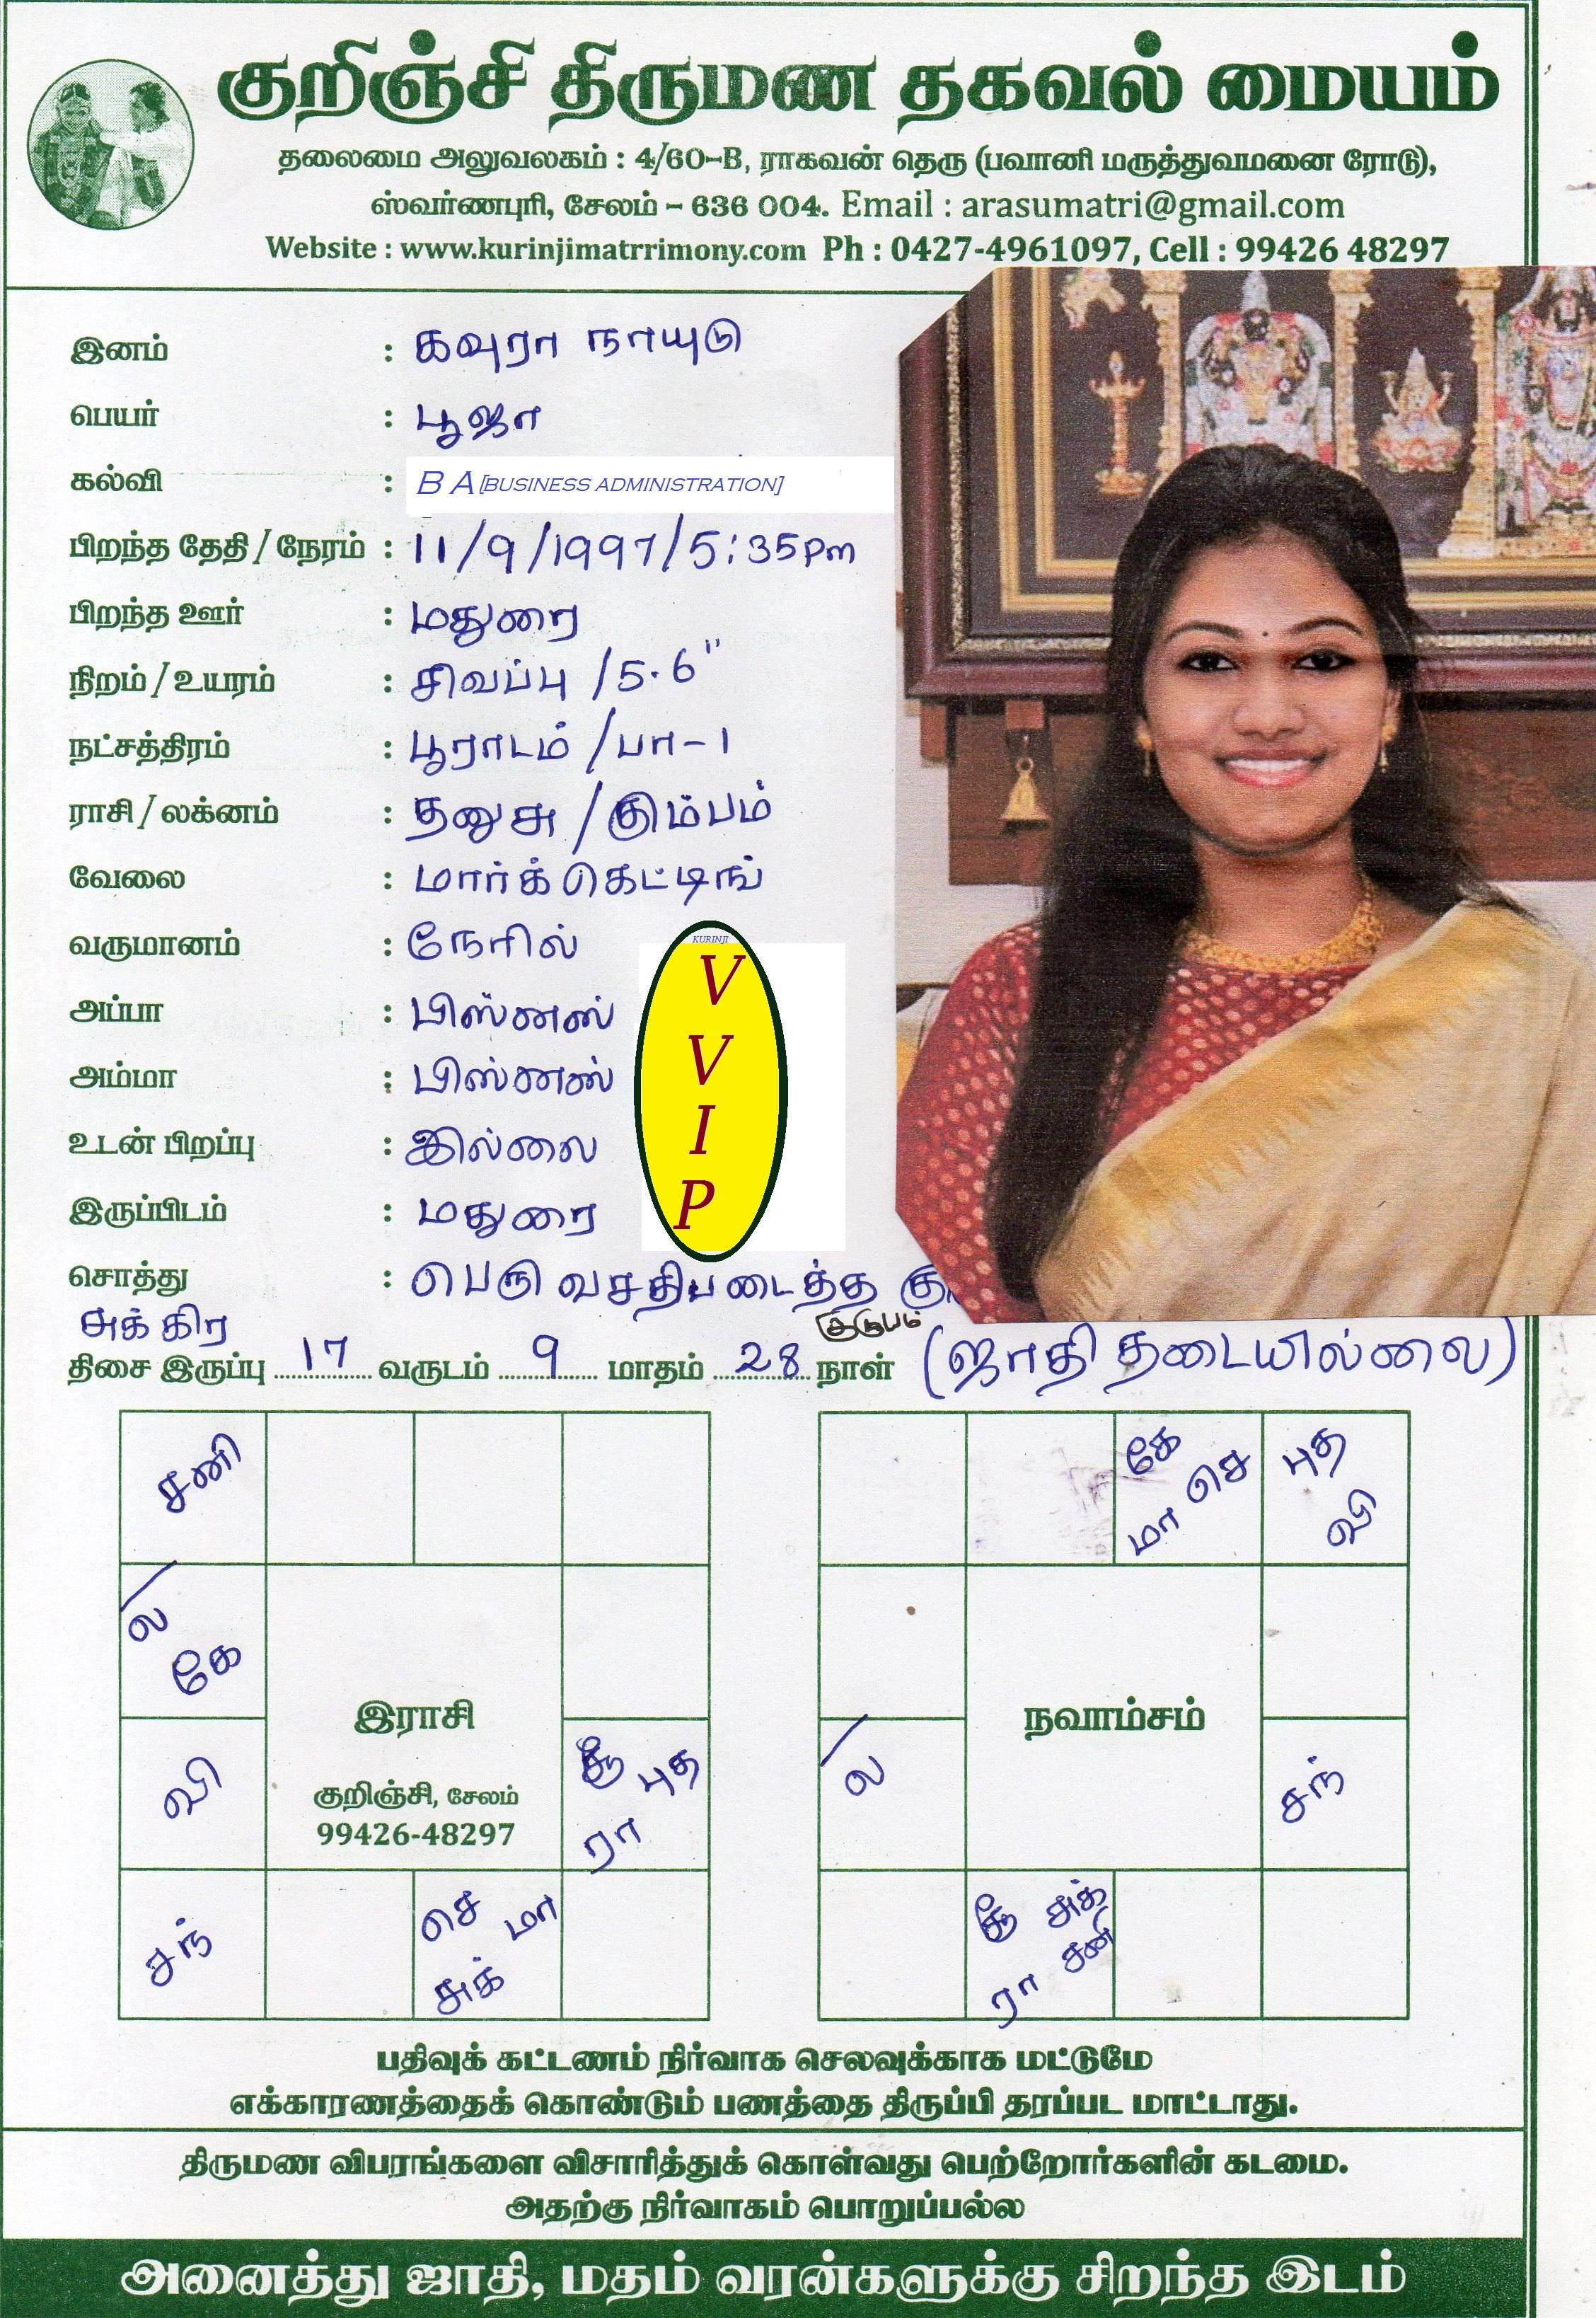 குறிஞ்சி திருமண தகவல் மையம்
தலைமை அலுவலகம் : 4/60-B, ராகவன் தெரு (பவானி மருத்துவமனை ரோடு),
ஸ்வர்ணபுரி, சேலம் - 636 004. Email : arasumatri@gmail.com
Website : www.kurinjimatrrimony.com Ph : 0427-4961097, Cell : 99426 48297
இனம் : கவுரா நாயுடு
பெயர் : பூஜா
கல்வி : B A [BUSINESS ADMINISTRATION]
பிறந்த தேதி / நேரம் : 11/9/1997/5:35pm
பிறந்த ஊர் : மதுரை
நிறம் / உயரம் : சிவப்பு /5.6"
நட்சத்திரம் : பூராடம் /பா-1
ராசி / லக்னம் : தனுசு /கும்பம்
வேலை : மார்க்கெட்டிங்
வருமானம் : நேரில்
அப்பா : பிஸ்னஸ்
அம்மா : பிஸ்னஸ்
உடன் பிறப்பு : இல்லை
இருப்பிடம் : மதுரை
KURINJI
V
V
I
P
சொத்து : பெரு வசதிபடைத்த
குடும்பம்
சுக்கிர
திசை இருப்பு 17 வருடம் 9 மாதம் 28 நாள் (ஜாதி தடையில்லை)
சனி
ல
கே
வி
சூ புத
ரா
சந்
செ மா
சுக்
இராசி
குறிஞ்சி, சேலம்
99426-48297
கே
செ
மா
புத
வி
ல
சந்
சூ சுக்
ரா சனி
நவாம்சம்
பதிவுக் கட்டணம் நிர்வாக செலவுக்காக மட்டுமே
எக்காரணத்தைக் கொண்டும் பணத்தை திருப்பி தரப்பட மாட்டாது.
திருமண விபரங்களை விசாரித்துக் கொள்வது பெற்றோர்களின் கடமை.
அதற்கு நிர்வாகம் பொறுப்பல்ல
அனைத்து ஜாதி, மதம் வரன்களுக்கு சிறந்த இடம்